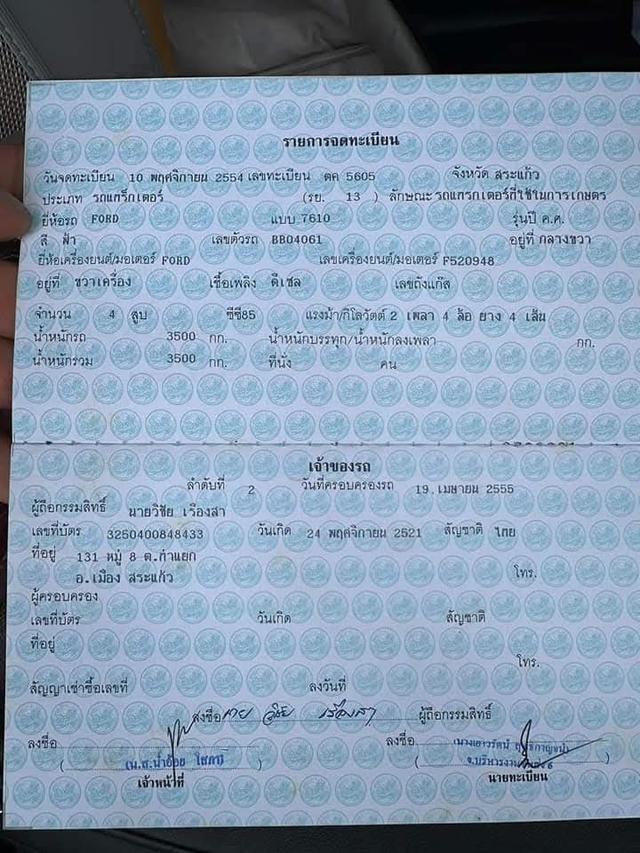 รายการจดทะเบียน
วันจดทะเบียน 10 พฤศจิกายน 2554 เลขทะเบียน ตค 5605 จังหวัด สระแก้ว
ประเภท รถแทร็กเตอร์ (รย. 13 ) ลักษณะ รถแทรกเตอร์ที่ใช้ในการเกษตร
ยี่ห้อรถ FORD แบบ 7610 รุ่นปี ค.ศ.
สี ฟ้า เลขตัวรถ BB04061 อยู่ที่ กลางขวา
ยี่ห้อเครื่องยนต์/มอเตอร์ FORD เลขเครื่องยนต์/มอเตอร์ F520948
อยู่ที่ ขวาเครื่อง เชื้อเพลิง ดีเซล เลขถังแก๊ส
จำนวน 4 สูบ ซีซี 85 แรงม้า/กิโลวัตต์ 2 เพลา 4 ล้อ ยาง 4 เส้น
น้ำหนักรถ 3500 กก. น้ำหนักบรรทุก/น้ำหนักลงเพลา กก.
น้ำหนักรวม 3500 กก. ที่นั่ง คน
เจ้าของรถ
ลำดับที่ 2 วันที่ครอบครองรถ 19 เมษายน 2555
ผู้ถือกรรมสิทธิ์ นายวิชัย เรืองสา
เลขที่บัตร 3250400848433 วันเกิด 24 พฤศจิกายน 2521 สัญชาติ ไทย
ที่อยู่ 131 หมู่ 8 ต.ท่าแยก
อ.เมือง สระแก้ว โทร.
ผู้ครอบครอง
เลขที่บัตร วันเกิด สัญชาติ
ที่อยู่
โทร.
สัญญาเช่าซื้อเลขที่ ลงวันที่
ลงชื่อ นาย วิชัย เรืองสา ผู้ถือกรรมสิทธิ์
ลงชื่อ ลงชื่อ
(น.ส.น้ำอ้อย ) (นางเยาวรัตน์ )
เจ้าหน้าที่ นายทะเบียน